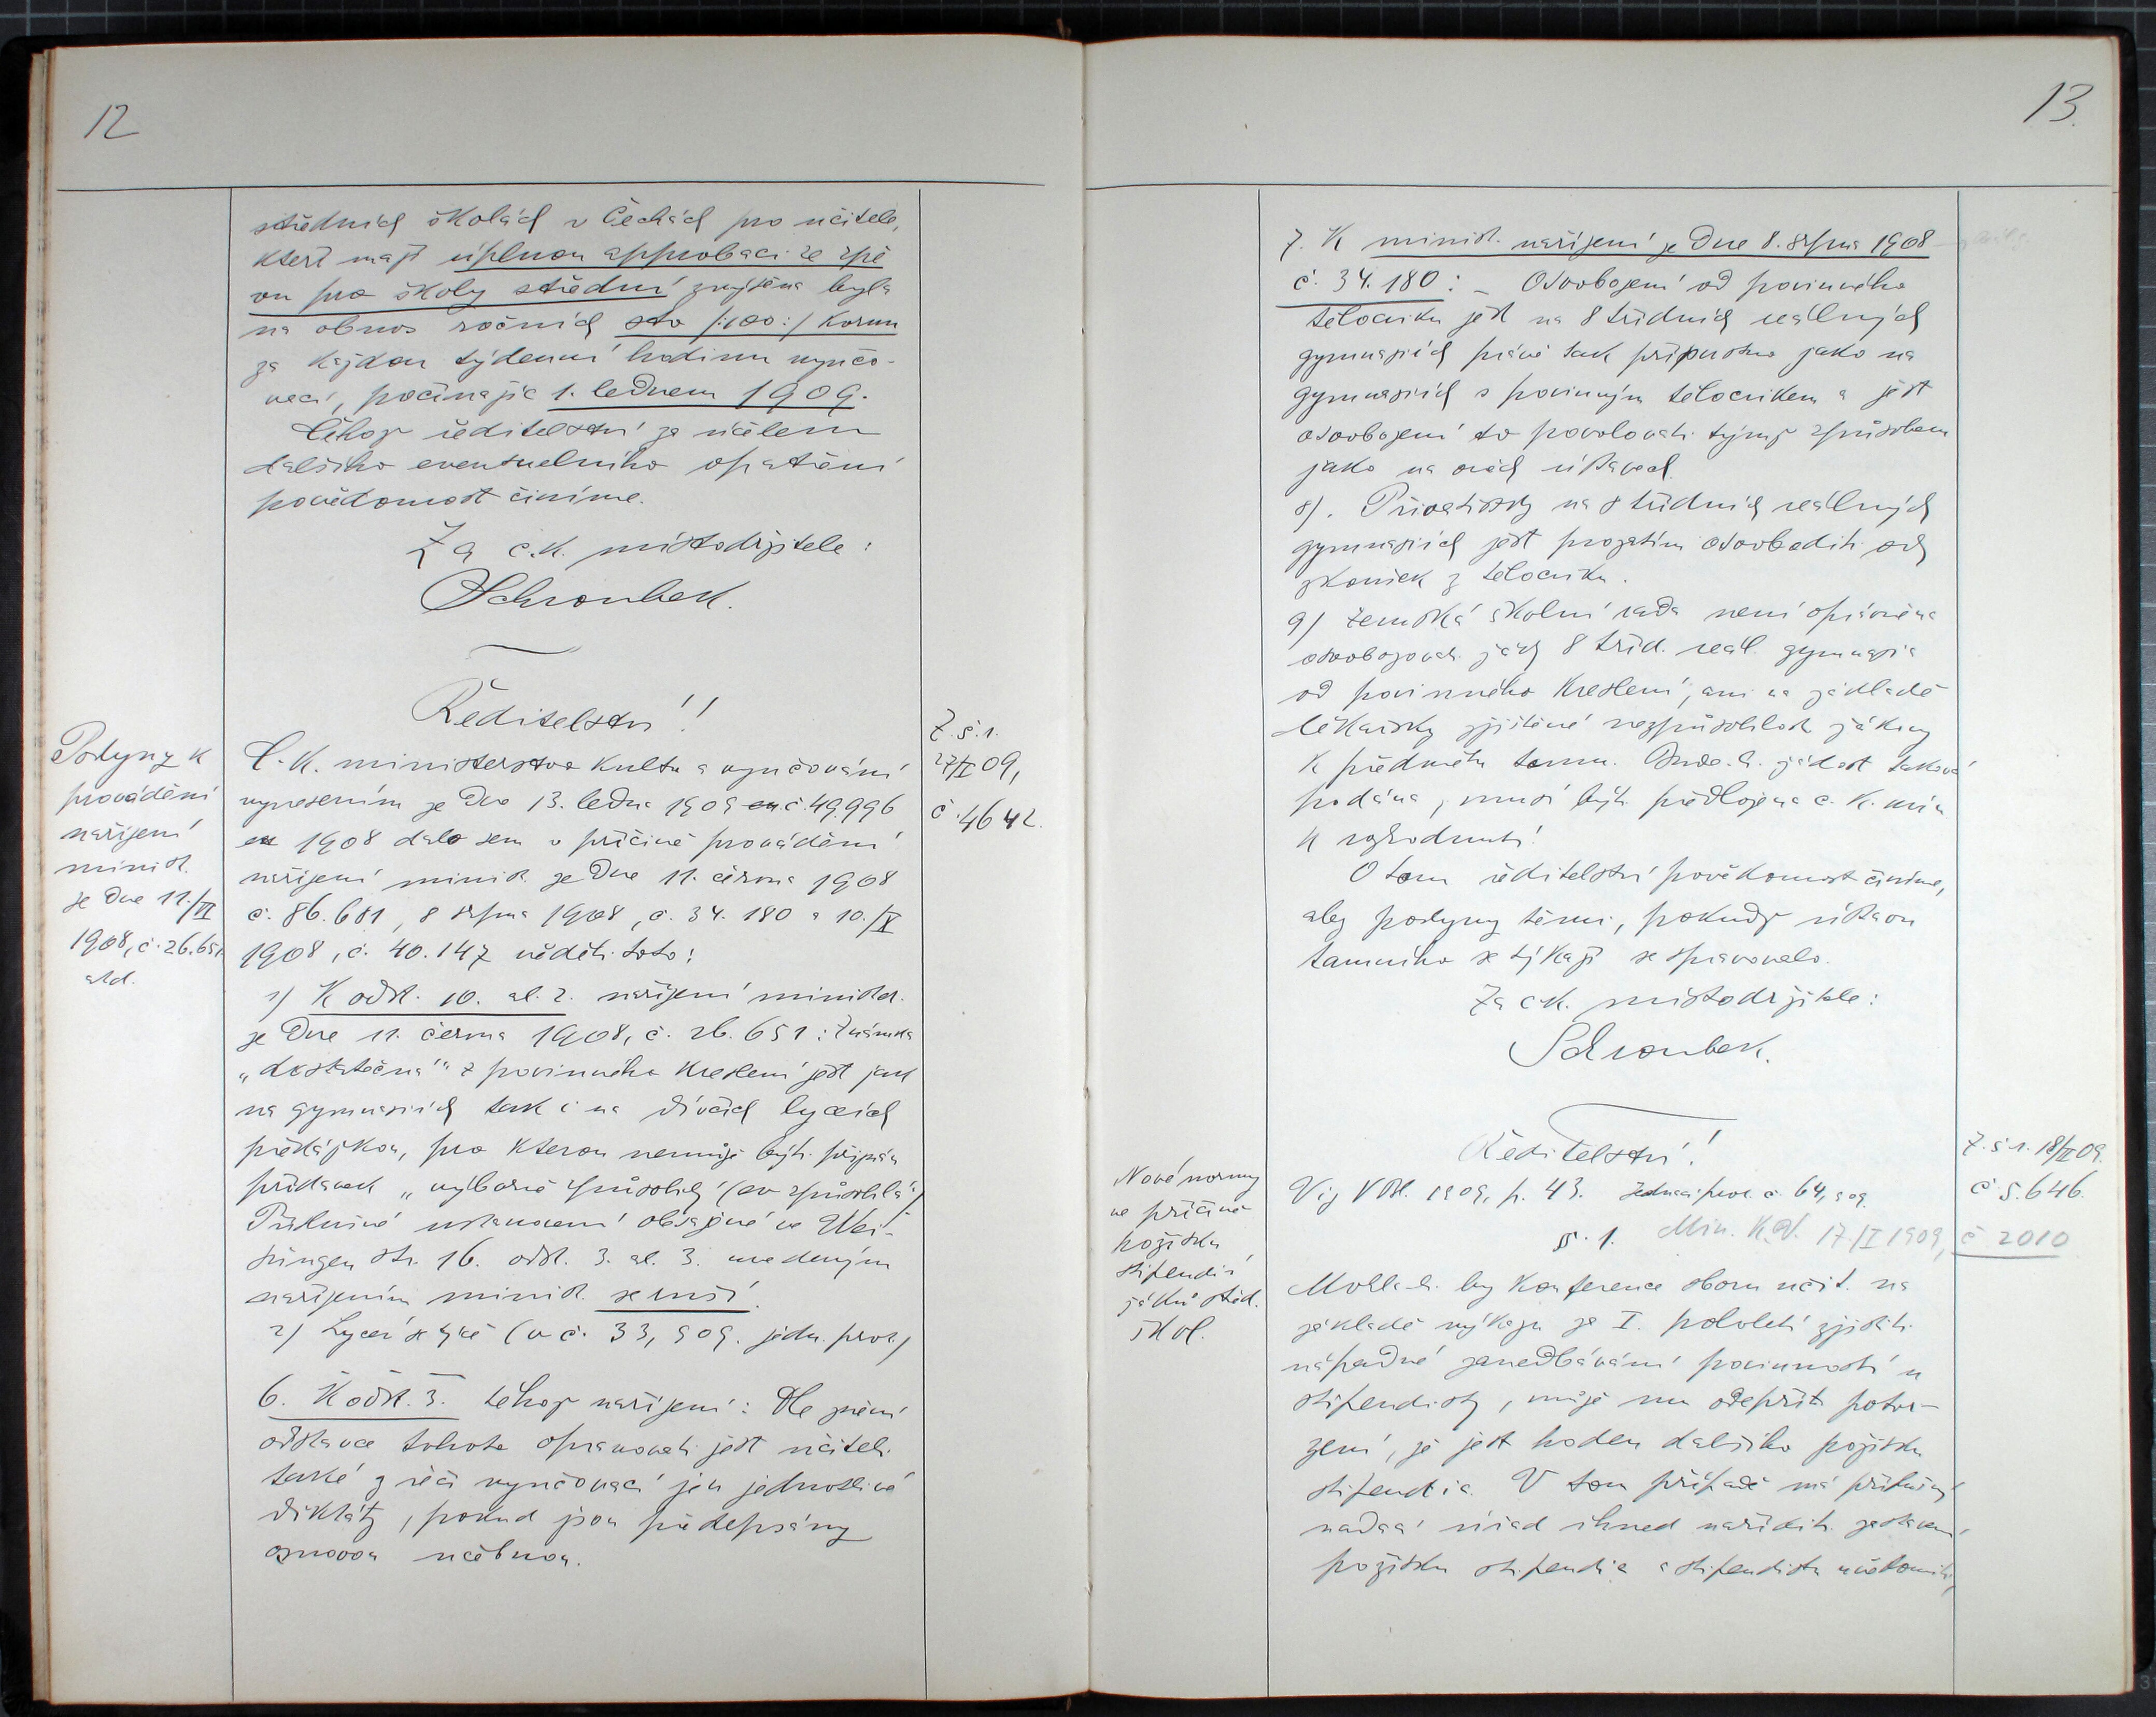 12
středních školách v Čechách pro učitele,
kteří mají úplnou approbaci ze zpě
vu pro školy střední zvýšena byla
na obnos ročních sto /:100:/ korun
za každou týdenní hodinu vyučo-
vací, počínajíc 1. lednem 1909.
Čehož ředitelství za účelem
dalšího eventuelního opatření
povědomost činíme.
Za c.k. místodržitele:
Schronbek.
Ředitelství!
Pokyny k
provádění
nařízení
minist.
ze dne 11./VI
1908, č. 26.651
atd.
Z.š.r.
27/I 09,
č. 4642.
C. K. ministerstvo kultu a vyučování
vynesením ze dne 13. ledna 1909 č. 49.996
ex 1908 dalo sem v příčině provádění
nařízení minist. ze dne 11. června 1908
č. 86.681, 8 srpna 1908, č. 34.180 a 10./X
1908, č. 40.147 věděti toto:
1) K odst. 10. al. 2. nařízení minister.
ze dne 11. června 1908, č. 26.651: Známka
„dostatečná“ z povinného kreslení jest jak
na gymnasiích tak i na dívčích lyceích
překážkou, pro kterou nemůže býti připsán
přídavek „výborně způsobilý (ev způsobilá“)
Příslušné ustanovení obsažené ve Wei-
sungen str. 16. odst. 3. al. 3. uvedeným
nařízením minist. se ruší.
2) Lyceí se týče (v č. 33, 909. jedn. prot.)
6. K odst. 3. téhož nařízení: Dle znění
odstavce tohoto opravovati jest učiteli
také z řeči vyučovací jen jednotlivé
diktáty, pokud jsou předepsány
osnovou učebnou.
13.
7. K minist. nařízení ze dne 8. srpna 1908
č. 34.180: – Osvobození od povinného
tělocviku jest na 8 třídních reálných
gymnasiích právě tak přípustno jako na
gymnasiích s povinným tělocvikem a jest
osvobození to povolovati týmž způsobem
jako na oněch ústavech.
8). Privatisty na 8 třídních reálných
gymnasiích jest prozatím osvoboditi od
zkoušek z tělocviku.
9) Zemská školní rada není oprávněna
osvobozovati žáky 8 tříd. reál. gymnasia
od povinného kreslení, ani na základě
lékařsky zjištěné nezpůsobilosti žákovy
k předmětu tomu. Bude-li žádost taková
podána, musí býti předložena c. k. min
k rozhodnutí.
O tom ředitelství povědomost činíme,
aby pokyny těmi, pokudž ústavu
tamního se týkají se spravovalo.
Za c.k. místodržitele:
Schronbek.
Ředitelství!
Nové normy
ve příčině
požitku
stipendií
žáků střed.
škol.
Z.š.r. 18/II 09.
č 5.646.
Viz VBl. 1909, p. 43. Jednací prot. č. 64, 909.
§. 1. Min. K.V. 17/I 1909, č 2010
Mohla-li by konference sboru učit. na
základě výkazu za I. pololetí zjistiti
nápadné zanedbávání povinností u
stipendisty, může mu odepříti potvr-
zení, že jest hoden dalšího požitku
stipendia. V tom případě má příslušný
nadač. úřad ihned naříditi zastavení
požitku stipendia a stipendistu uvědomiti,